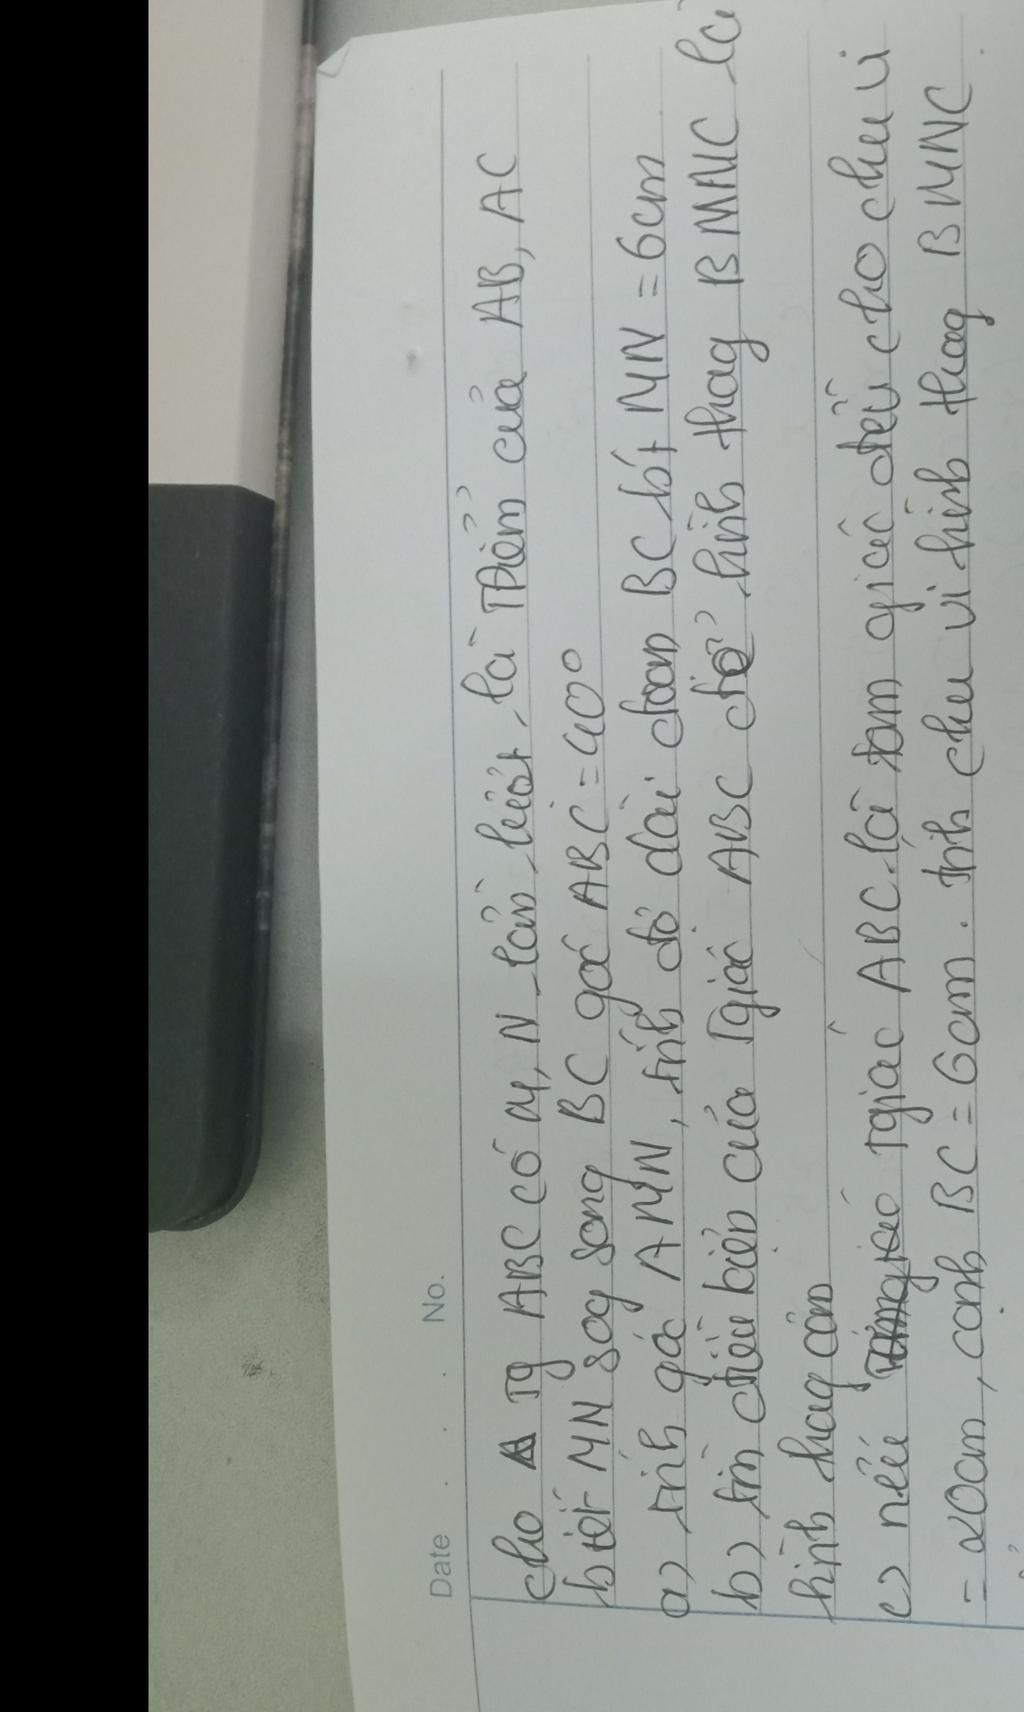 Date . . . No.
cho Tg ABC có M, N lần lượt là Tđiểm của AB, AC
biết MN sog song BC góc ABC = 40°
a) tính góc AMN, tính độ dài đoạn BC bít MN = 6cm
b) tìm điều kiện của Tgiác ABC để hình thag BMNC là
hình thag cân
c) nếu Tgiác ABC là tam giác đều cho chu vi
= 20cm, cạnh BC = 6cm. tính chu vi hình thag BMNC